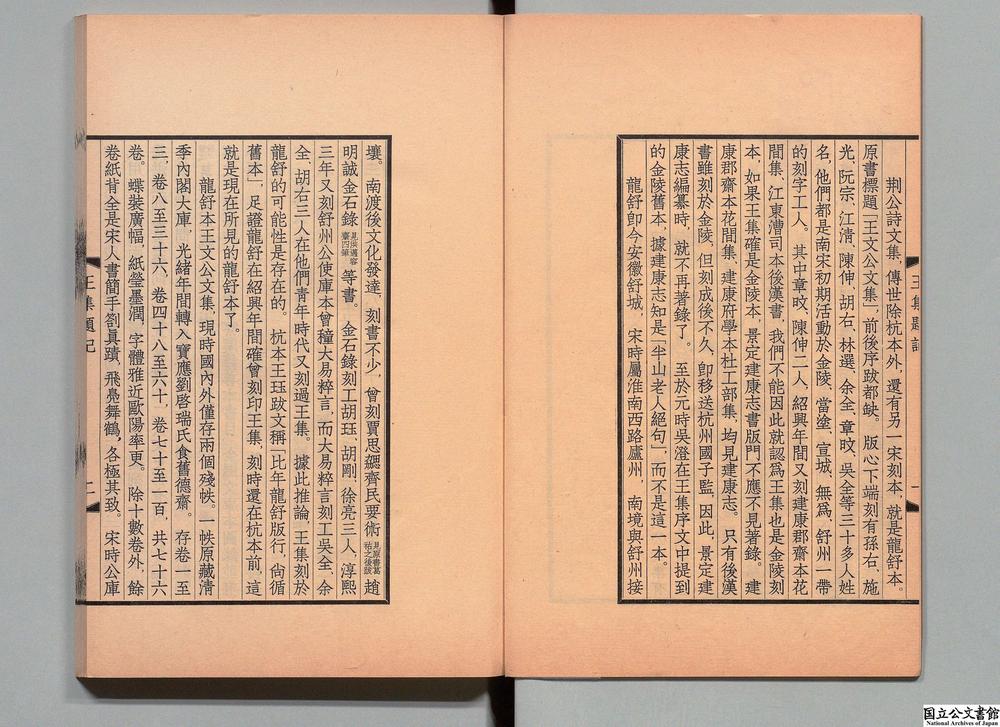 王集題記
一
荆公詩文集，傳世除杭本外，還有另一宋刻本，就是龍舒本。
原書標題「王文公文集」，前後序跋都缺。版心下端刻有孫右、施
光、阮宗、江淸、陳伸、胡右、林選、余全、章旼、吳全等三十多人姓
名，他們都是南宋初期活動於金陵、當塗、宣城、無爲、舒州一帶
的刻字工人。其中章旼、陳伸二人，紹興年間又刻建康郡齋本花
間集、江東漕司本後漢書，我們不能因此就認爲王集也是金陵刻
本，如果王集確是金陵本，景定建康志書版門不應不見著錄。建
康郡齋本花間集、建康府學本杜工部集，均見建康志。只有後漢
書雖刻於金陵，但刻成後不久，卽移送杭州國子監，因此，景定建
康志編纂時，就不再著錄了。至於元時吳澄在王集序文中提到
的金陵舊本，據建康志知是「半山老人絕句」，而不是這一本。
龍舒卽今安徽舒城，宋時屬淮南西路廬州，南境與舒州接
壤。南渡後文化發達，刻書不少，曾刻賈思勰齊民要術見原書葛祐之後跋趙
明誠金石錄見洪邁容齋四筆等書。金石錄刻工胡珏、胡剛、徐亮三人，淳熙
三年又刻舒州公使庫本曾穜大易粹言，而大易粹言刻工吳全、余
全、胡右三人在他們靑年時代又刻過王集。據此推論，王集刻於
龍舒的可能性是存在的。杭本王珏跋文稱「比年龍舒版行，尙循
舊本」，足證龍舒在紹興年間確曾刻印王集，刻時還在杭本前，這
就是現在所見的龍舒本了。
龍舒本王文公文集，現時國內外僅存兩個殘帙。一帙原藏淸
季內閣大庫，光緒年間轉入寶應劉啓瑞氏食舊德齋。存卷一至
三、卷八至三十六、卷四十八至六十、卷七十至一百，共七十六
卷。蝶裝廣幅，紙瑩墨潤，字體雅近歐陽率更。除十數卷外，餘
卷紙背全是宋人書簡手劄眞蹟，飛鳧舞鶴，各極其致。宋時公庫
王集題記
二
国立公文書館
National Archives of Japan